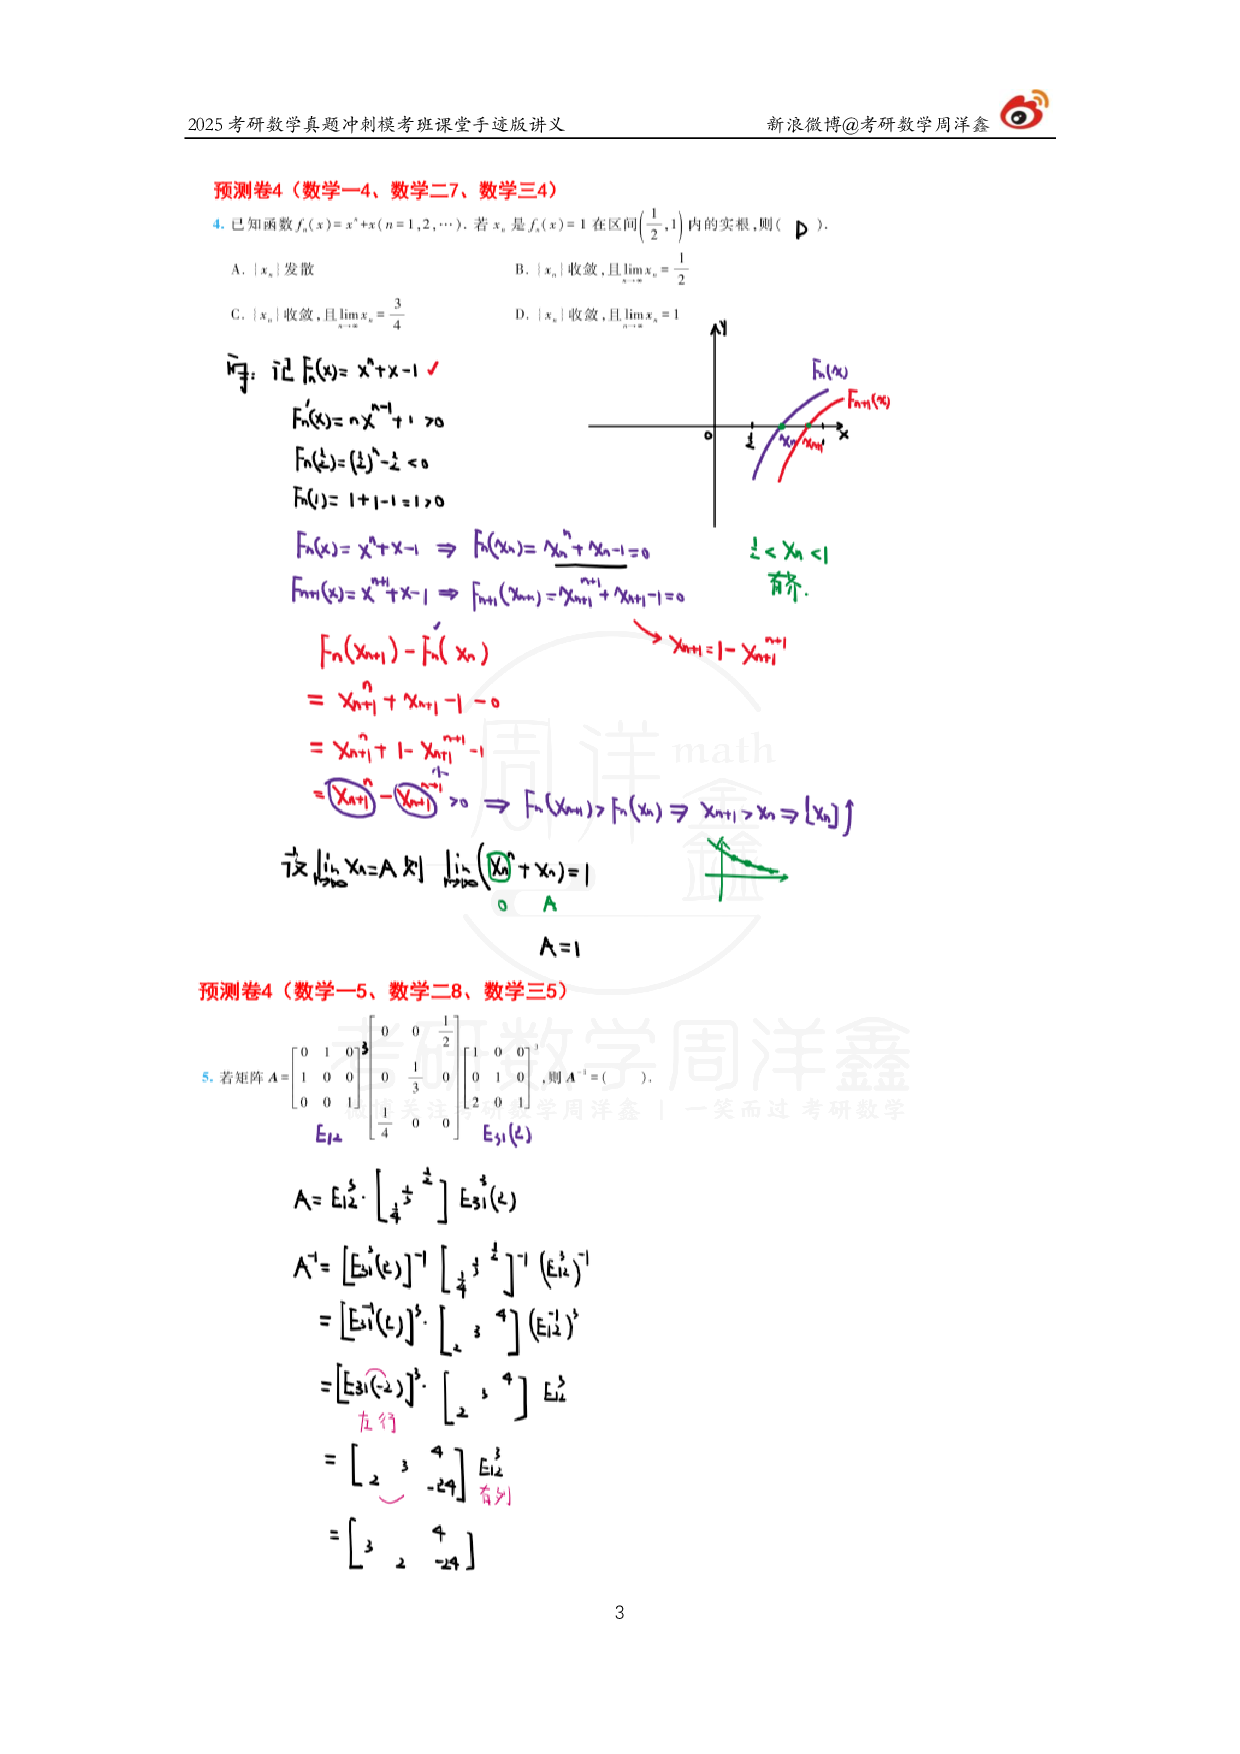 2025 考研数学真题冲刺模考班课堂手迹版讲义 新浪微博@考研数学周洋鑫
预测卷4（数学一4、数学二7、数学三4）
4. 已知函数 f_n(x)=x^n+x(n=1,2,⋯). 若 x_n 是 f_n(x)=1 在区间(1/2,1)内的实根,则( D ).
A. {x_n}发散 B. {x_n}收敛,且 lim_{n→∞} x_n=1/2
C. {x_n}收敛,且 lim_{n→∞} x_n=3/4 D. {x_n}收敛,且 lim_{n→∞} x_n=1
记 F_n(x)=x^n+x-1 ✓
y
F_n(x)
F_{n+1}(x)
0 1/2 x_n x_{n+1} 1 x
F_n'(x)=nx^{n-1}+1>0
F_n(1/2)=(1/2)^n-1/2<0
F_n(1)=1+1-1=1>0
F_n(x)=x^n+x-1 ⇒ F_n(x_n)=x_n^n+x_n-1=0 1/2<x_n<1
F_{n+1}(x)=x^{n+1}+x-1 ⇒ F_{n+1}(x_{n+1})=x_{n+1}^{n+1}+x_{n+1}-1=0 有界.
F_n(x_{n+1})-F_n(x_n) → x_{n+1}=1-x_{n+1}^{n+1}
= x_{n+1}^n+x_{n+1}-1-0
= x_{n+1}^n+1-x_{n+1}^{n+1}-1
= x_{n+1}^n-x_{n+1}^{n+1}>0 ⇒ F_n(x_{n+1})>F_n(x_n) ⇒ x_{n+1}>x_n ⇒ {x_n}↑
设 lim_{n→∞} x_n=A 则 lim_{n→∞}(x_n^n+x_n)=1
0 A
A=1
周洋鑫 math
预测卷4（数学一5、数学二8、数学三5）
5. 若矩阵 A=[0 1 0; 1 0 0; 0 0 1]^3 [0 0 1/2; 0 1/3 0; 1/4 0 0] [1 0 0; 0 1 0; 2 0 1]^3,则 A^{-1}=( ).
考研数学周洋鑫
微博关注 考研数学周洋鑫 | 一笑而过 考研数学
E_{12} E_{31}(2)
A=E_{12}^3·[ 1/2; 1/3; 1/4 ] E_{31}^3(2)
A^{-1}=[E_{31}^3(2)]^{-1} [ 1/2; 1/3; 1/4 ]^{-1} (E_{12}^3)^{-1}
=[E_{31}^{-1}(2)]^3·[ 4; 3; 2 ] (E_{12}^{-1})^3
=[E_{31}(-2)]^3·[ 4; 3; 2 ] E_{12}^3
左行
=[ 4; 3; 2 -24 ] E_{12}^3
右列
=[ 4; 3; 2 -24 ]
3